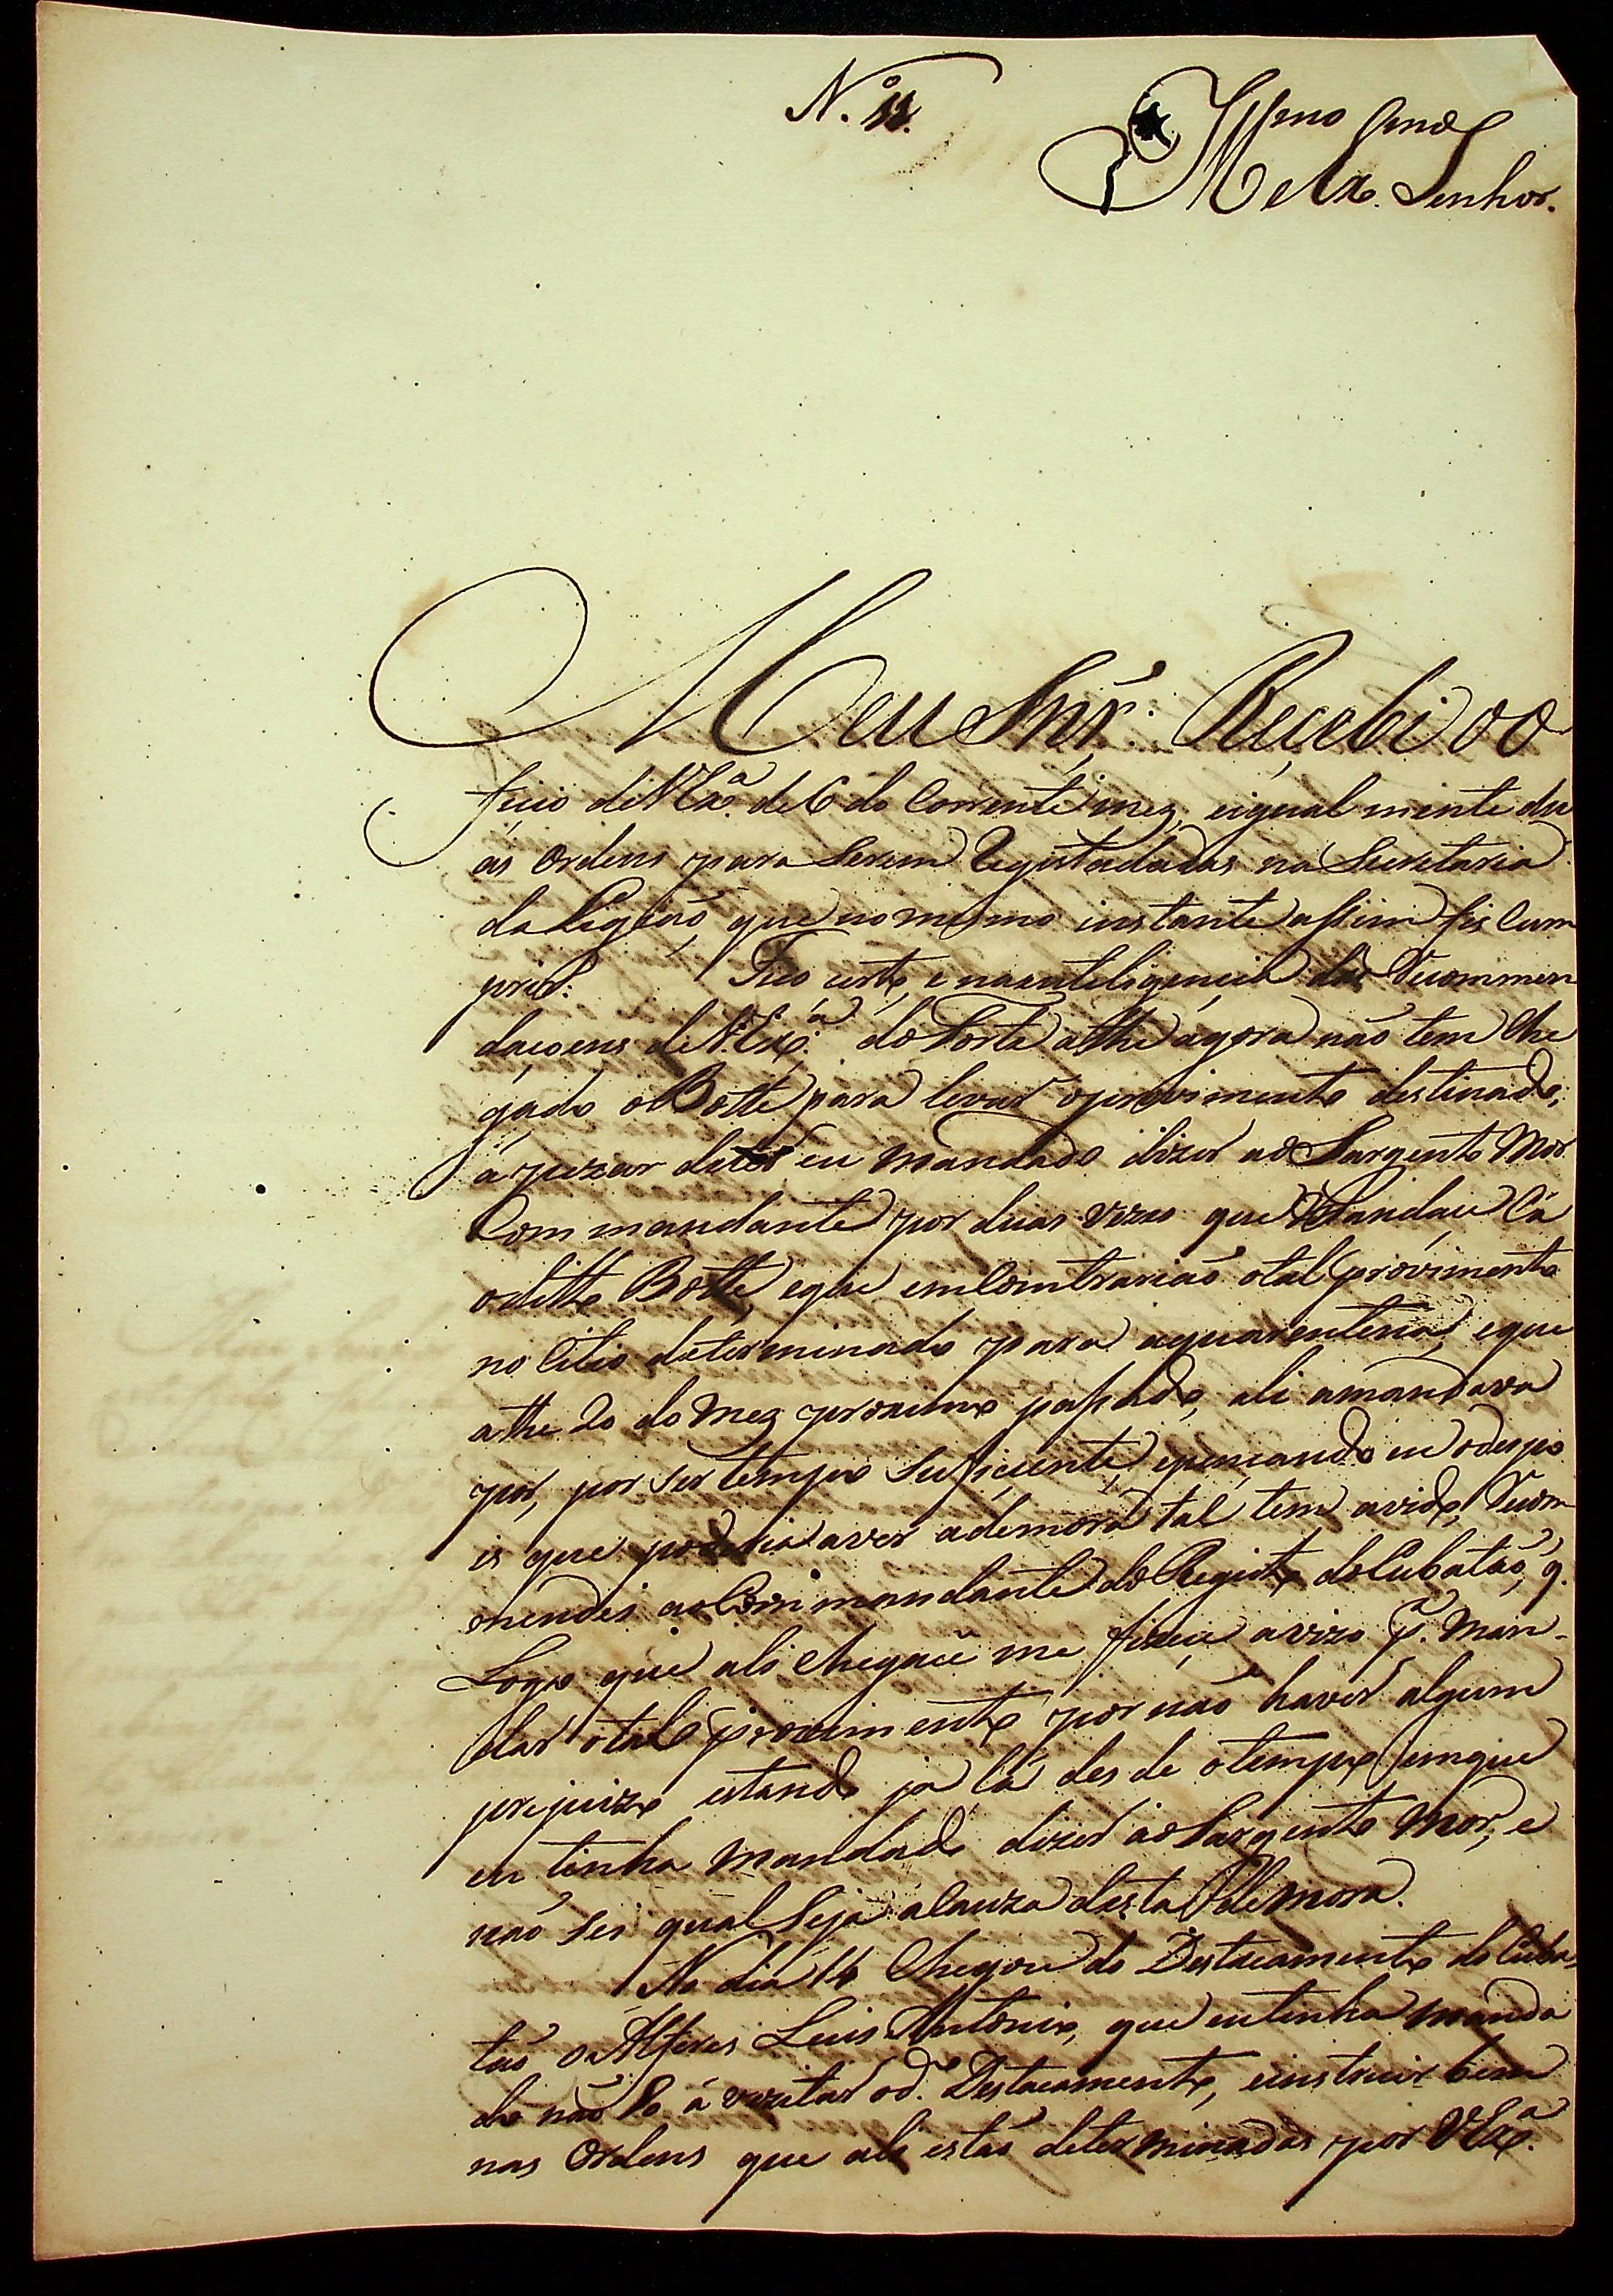 N.º 11.
Illmo Snor
e Exo. Senhor.
Meu Snr̃. Recebi o o
ficio de V. Exª. de 6 do Corrente mez, eigual mente du
as Ordens para Serem Registadadas na Secretaria
da Legião, que no mesmo instante assim fis Cum
prir. Fico certo, e na inteligencia das Recommen
daçoens de V. Exª. do Forte athe agora não tem Che
gado o Botte para levar oprovimento destinado,
a pezar de ter eu mandado dizer ao Sargento Mor
Commandante por duas vezes que Mandace Cá
oditto Botte, eque emContrarião otal provimento
no Citio determinado para aquarentena, eque
athe 20 do Mez proximo passado, ali amandava
por, por ser tempo Suficiente, epençando eu odespo
is que poderia aver ademora tal tem avido, Recom
mendei ao Commandante do Registo do Cubatão, q.
Logo que ali Chegace me fizece avizo pª. Man-
dar otal provimento por não haver algum
prejuizo estando ja lá des de otempo emque
eu tinha Mandado dizer ao Sargento Mor, e
não sei qual Seja aCauza desta deMora.
No dia 14 Chegou do Destacamento do Cuba-
tão o Alferes Luis Antonio, que eu tinha manda
do não Só á vizitar o d.º Destacamento, einstruir bem
nas Ordens que ali estão determinadas por V. Exª.